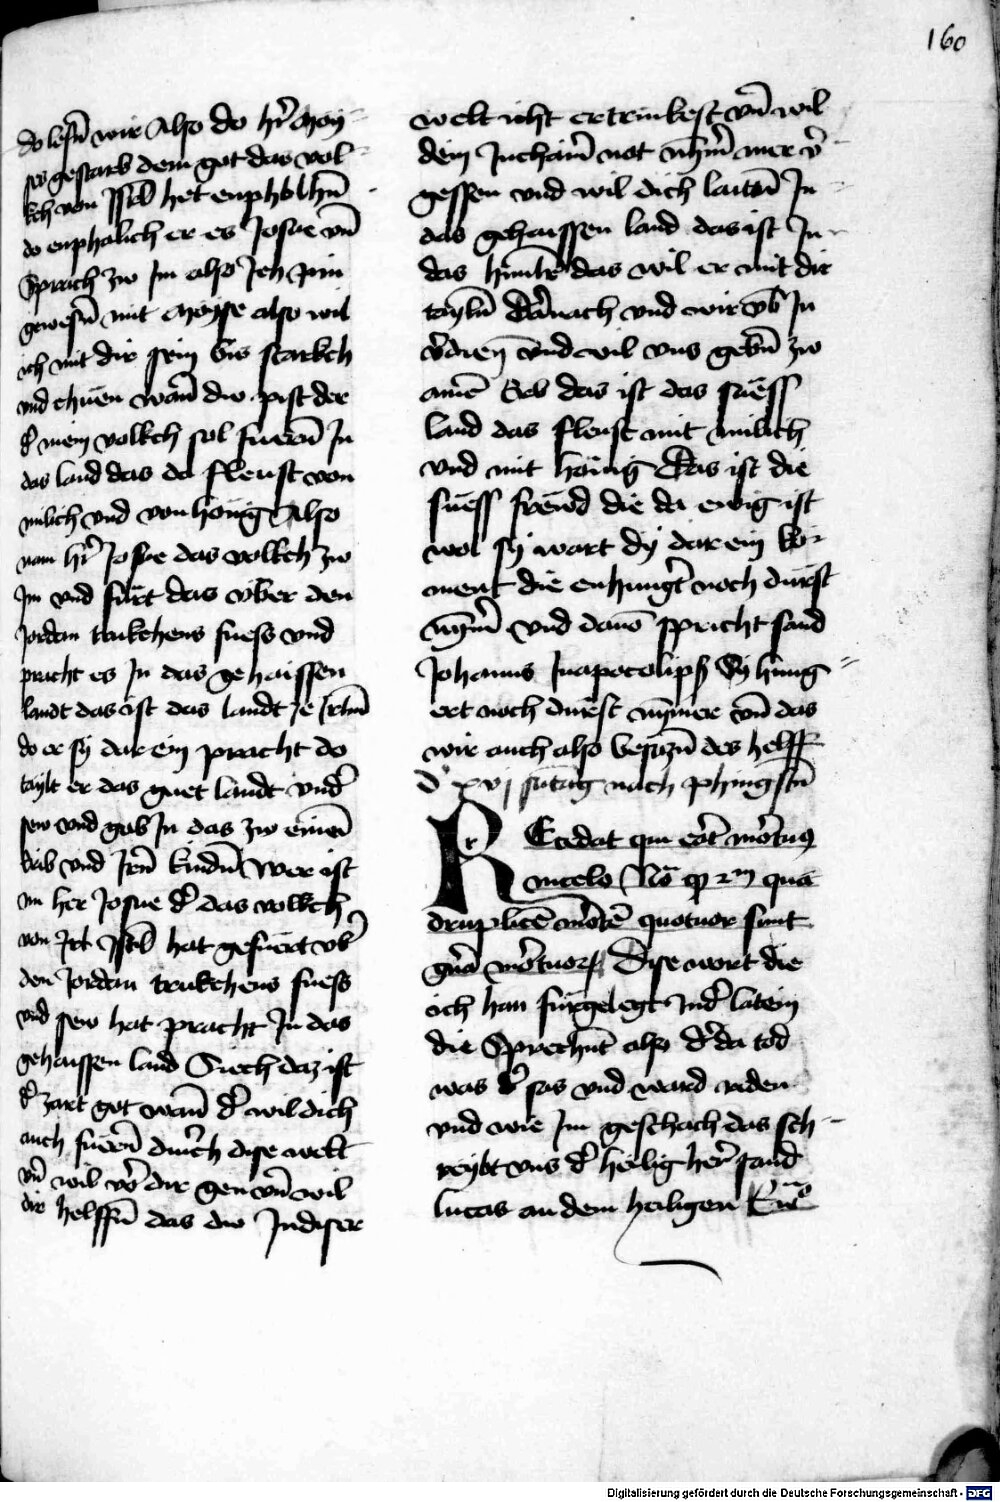 160
do lesn̄ wir Also do hr̄ Moy-
ses gestarb dem got das vol-
kch von Jsrl̄ het enpholhn̄
do enphalich er es Josue vn̄
Sprach zw Jm also Jch pin
gewesn̄ mit Moyse also wil
ich mit dir sein bis starkch
vnd chuen wan̄ dw pist der
d' mein volkch sol fuern̄ Jn
das land das do fleust von
milich vnd von honig Also
nam hr̄ Josue das volkch zw
Jm vnd fürt das über den
Jordan trukchens fuess vnd
pracht es Jn das gehaissen
landt das ist das landt Je
do er sy dar ein pracht do
taylt er das guet landt vnd'
sew vnd gab Jn das zw einē
erib vnd Jrn̄ kindn̄ Wer ist
nu her Josue d' das volkch
von Jsrl̄ hat gefuert vb'
den Jordan trukchens fuess
vnd sew hat pracht Jn das
gehaissen land Siech daz ist
d' zart got wan̄ d' wil dich
auch fuern̄ durch dise welt
vn̄ wil vor dir gen vn̄ wil
dir helffn̄ das dw Jn diser
welt icht ertrinkest vn̄ wil
dein Jn chainer not nymer mer v'-
gessen vnd wil dich laitn̄ Jn
das gehaissen land das ist Jn
das himlr̄ das wil er mit dir
tayln̄ Darnach vnd wir vb Jn
v'dienn̄ vnd wil vns gebn̄ zw
ainē Erb das ist das suess
land das fleust mit milich
vnd mit honig Das ist die
suess frewd die da ewig ist
wol sy wart dy dar ein ko-
ment die enhungert noch dürst
nymer vnd dauō spricht sand
Johanns Jn apocolipsi Sy hung-
ert noch dürst nymmer vn̄ das
wir auch also besiczn̄ des helff
d' xvj sūtag nach phingstn̄
REcedat qui erat mortuus
quā
druplicē mortē quotuor sunt
gn̄a mortuorum Dise wort die
ich han furgelegt Jn d' latein
die Sprechnt also d' da tod
was d' sas vnd ward reden
vnd wie Jm geschach das sch-
reybt vns d' heilig her sand
lucas an dem heiligen Ew̄
Digitalisierung gefördert durch die Deutsche Forschungsgemeinschaft - DFG